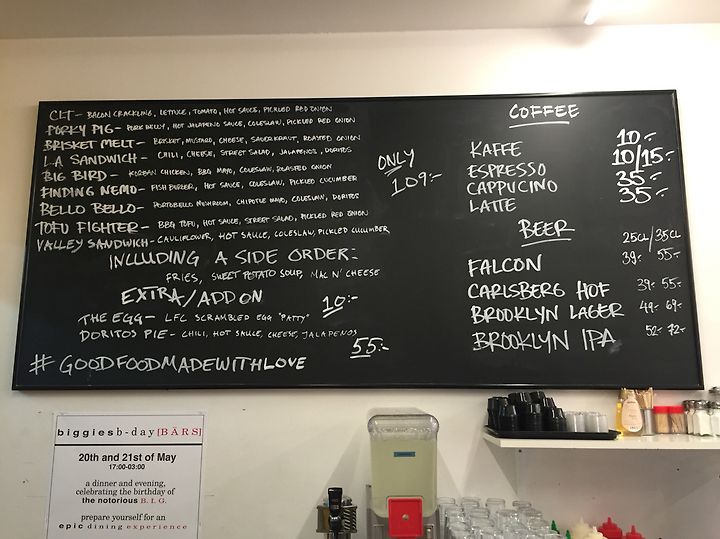 CLT - BACON CRACKLING, LETTUCE, TOMATO, HOT SAUCE, PICKLED RED ONION
PORKY PIG - PORK BELLY, HOT JALAPENO SAUCE, COLESLAW, PICKLED RED ONION
BRISKET MELT - BRISKET, MUSTARD, CHEESE, SAUERKRAUT, ROASTED ONION
L.A SANDWICH - CHILI, CHEESE, STREET SALAD, JALAPENOS, DORITOS
BIG BIRD - KOREAN CHICKEN, BBQ MAYO, COLESLAW, ROASTED ONION
FINDING NEMO - FISH BURGER, HOT SAUCE, COLESLAW, PICKLED CUCUMBER
BELLO BELLO - PORTOBELLO MUSHROOM, CHIPOTLE MAYO, COLESLAW, DORITOS
TOFU FIGHTER - BBQ TOFU, HOT SAUCE, STREET SALAD, PICKLED RED ONION
VALLEY SANDWICH - CAULIFLOWER, HOT SAUCE, COLESLAW, PICKLED CUCUMBER
ONLY
109:-
INCLUDING A SIDE ORDER:
FRIES, SWEET POTATO SOUP, MAC N' CHEESE
EXTRA/ADD ON
THE EGG - LFC SCRAMBLED EGG "PATTY" 10:-
DORITOS PIE - CHILI, HOT SAUCE, CHEESE, JALAPENOS 55:-
#GOODFOODMADEWITHLOVE
COFFEE
KAFFE 10:-
ESPRESSO 10/15:-
CAPPUCINO 35:-
LATTE 35:-
BEER
25CL/35CL
FALCON 39:- 55:-
CARLSBERG HOF 39:- 55:-
BROOKLYN LAGER 49:- 69:-
BROOKLYN IPA 52:- 72:-
biggies b-day [BÄRS]
20th and 21st of May
17:00-03:00
a dinner and evening,
celebrating the birthday of
the notorious B.I.G.
prepare yourself for an
epic dining experience